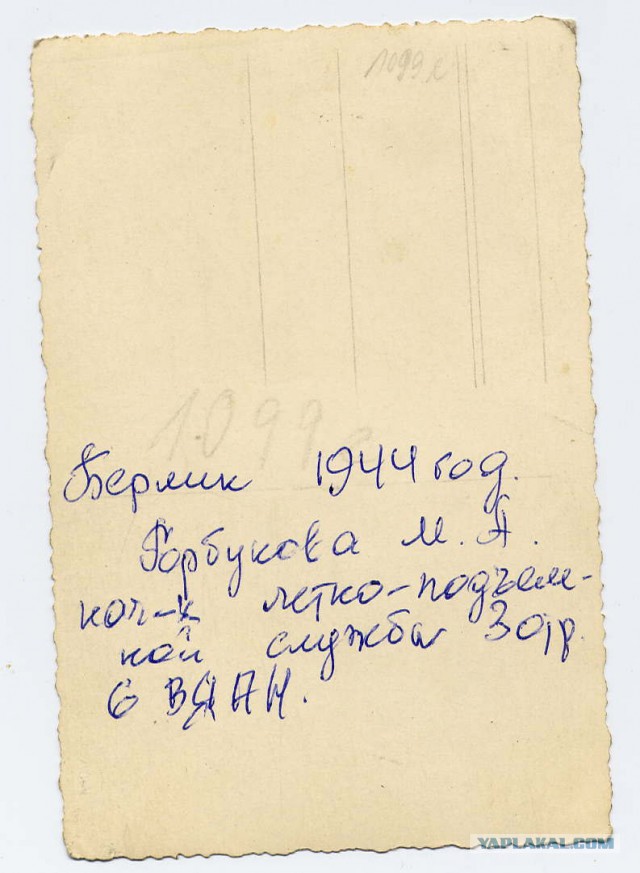 1099 г
1.099
Берлин 1944 год.
Горбукова М. А.
нач-к летно-подъем-
ной службы 30 гр.
6 ВДАН.
YAPLAKAL.COM